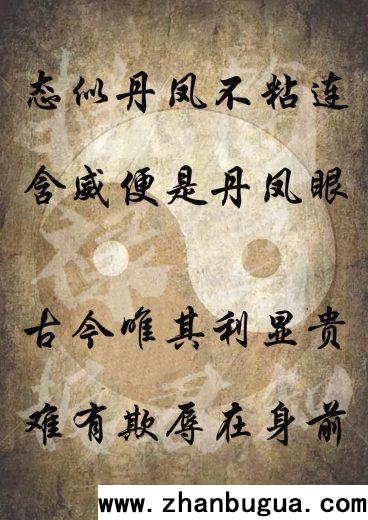 态似丹凤不粘连
含威便是丹凤眼
古今唯其利显贵
难有欺辱在身前
www.zhanbugua.com